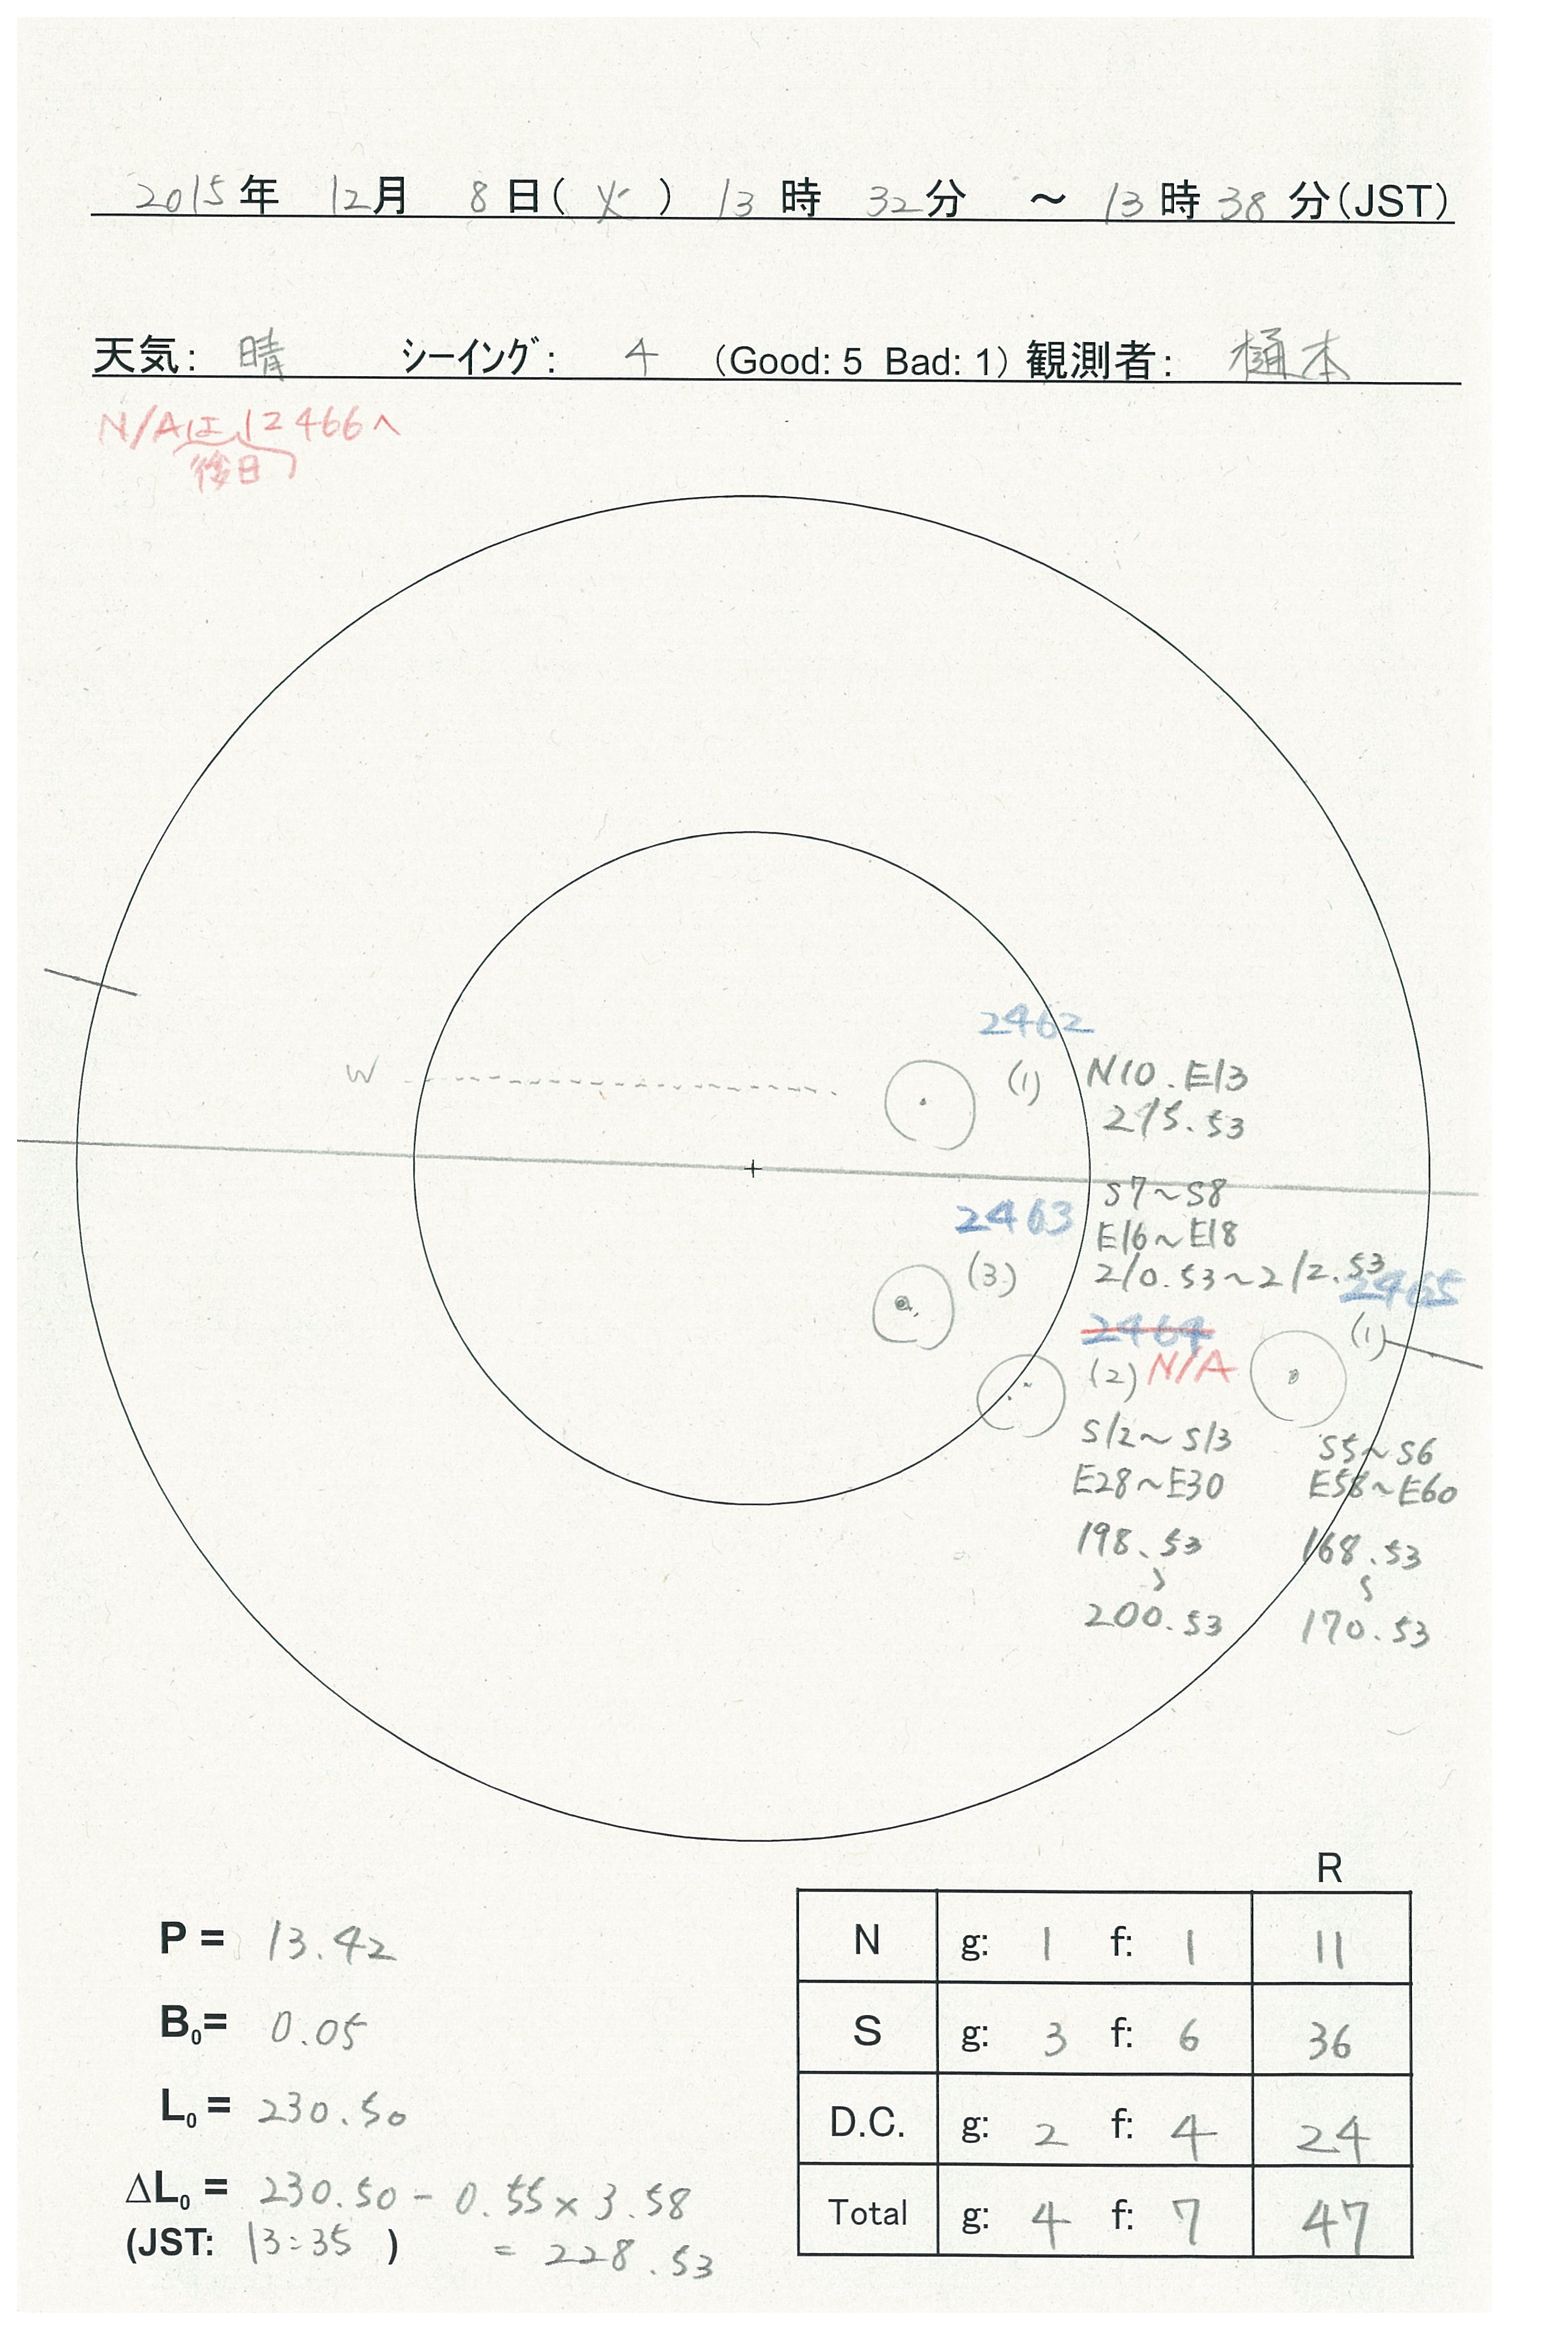 2015年 12月 8日(火) 13時 32分 ～ 13時38分(JST)
天気: 晴 シーイング: 4 (Good: 5 Bad: 1) 観測者: 樋本
N/Aは、12466へ
後日
2462
W
(1) N10. E13
215.53
S7～S8
2463
E16～E18
(3)
210.53～212.53
2465
2464
(1)
(2) N/A
S12～S13
E28～E30
198.53
～
200.53
S5～S6
E58～E60
168.53
～
170.53
R
N g: 1 f: 1 11
S g: 3 f: 6 36
D.C. g: 2 f: 4 24
Total g: 4 f: 7 47
P = 13.42
B₀= 0.05
L₀ = 230.50
ΔL₀ = 230.50 - 0.55 × 3.58
(JST: 13:35 ) = 228.53